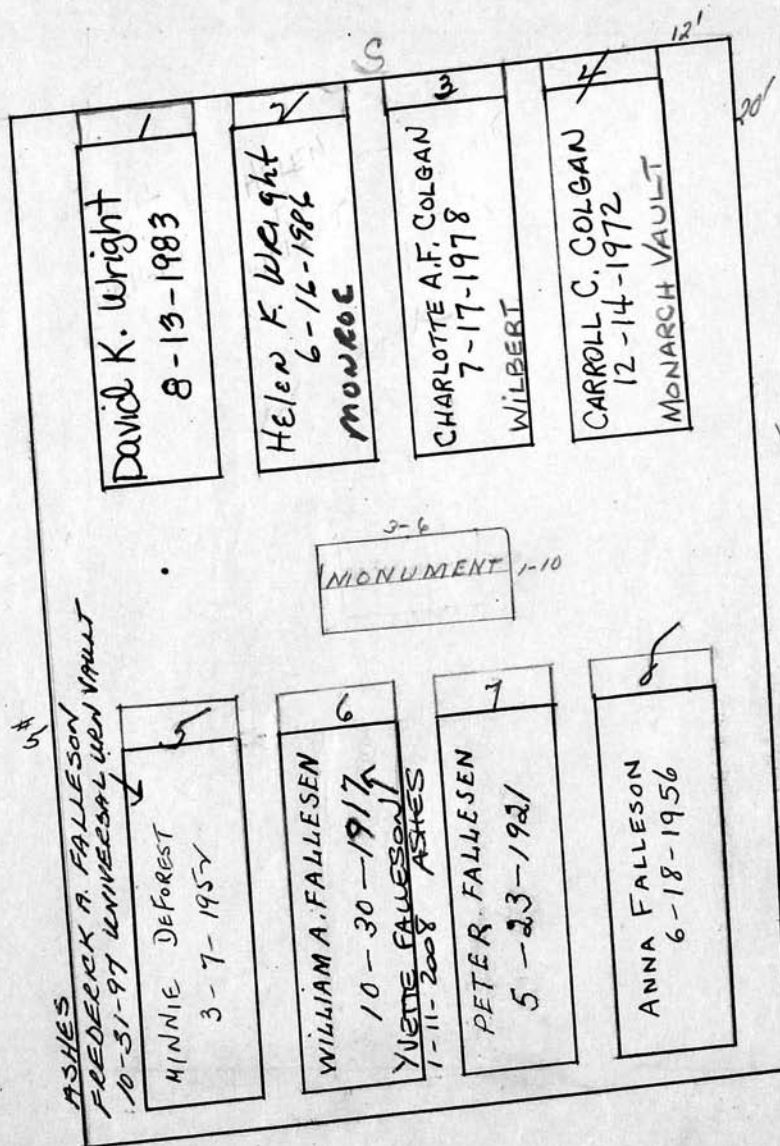 S
12'
20'
1
David K. Wright
8-13-1983
2
Helen F. Wright
6-16-1986
MONROE
3
CHARLOTTE A.F. COLGAN
7-17-1978
WILBERT
4
CARROLL C. COLGAN
12-14-1972
MONARCH VAULT
3-6
MONUMENT
1-10
#5
ASHES
FREDERICK A. FALLESON
10-31-97 UNIVERSAL URN VAULT
5
MINNIE DEFOREST
3-7-1952
6
WILLIAM A. FALLESEN
10-30-1917
YVETTE FALLESON
1-11-2008 ASHES
7
PETER FALLESEN
5-23-1921
8
ANNA FALLESON
6-18-1956